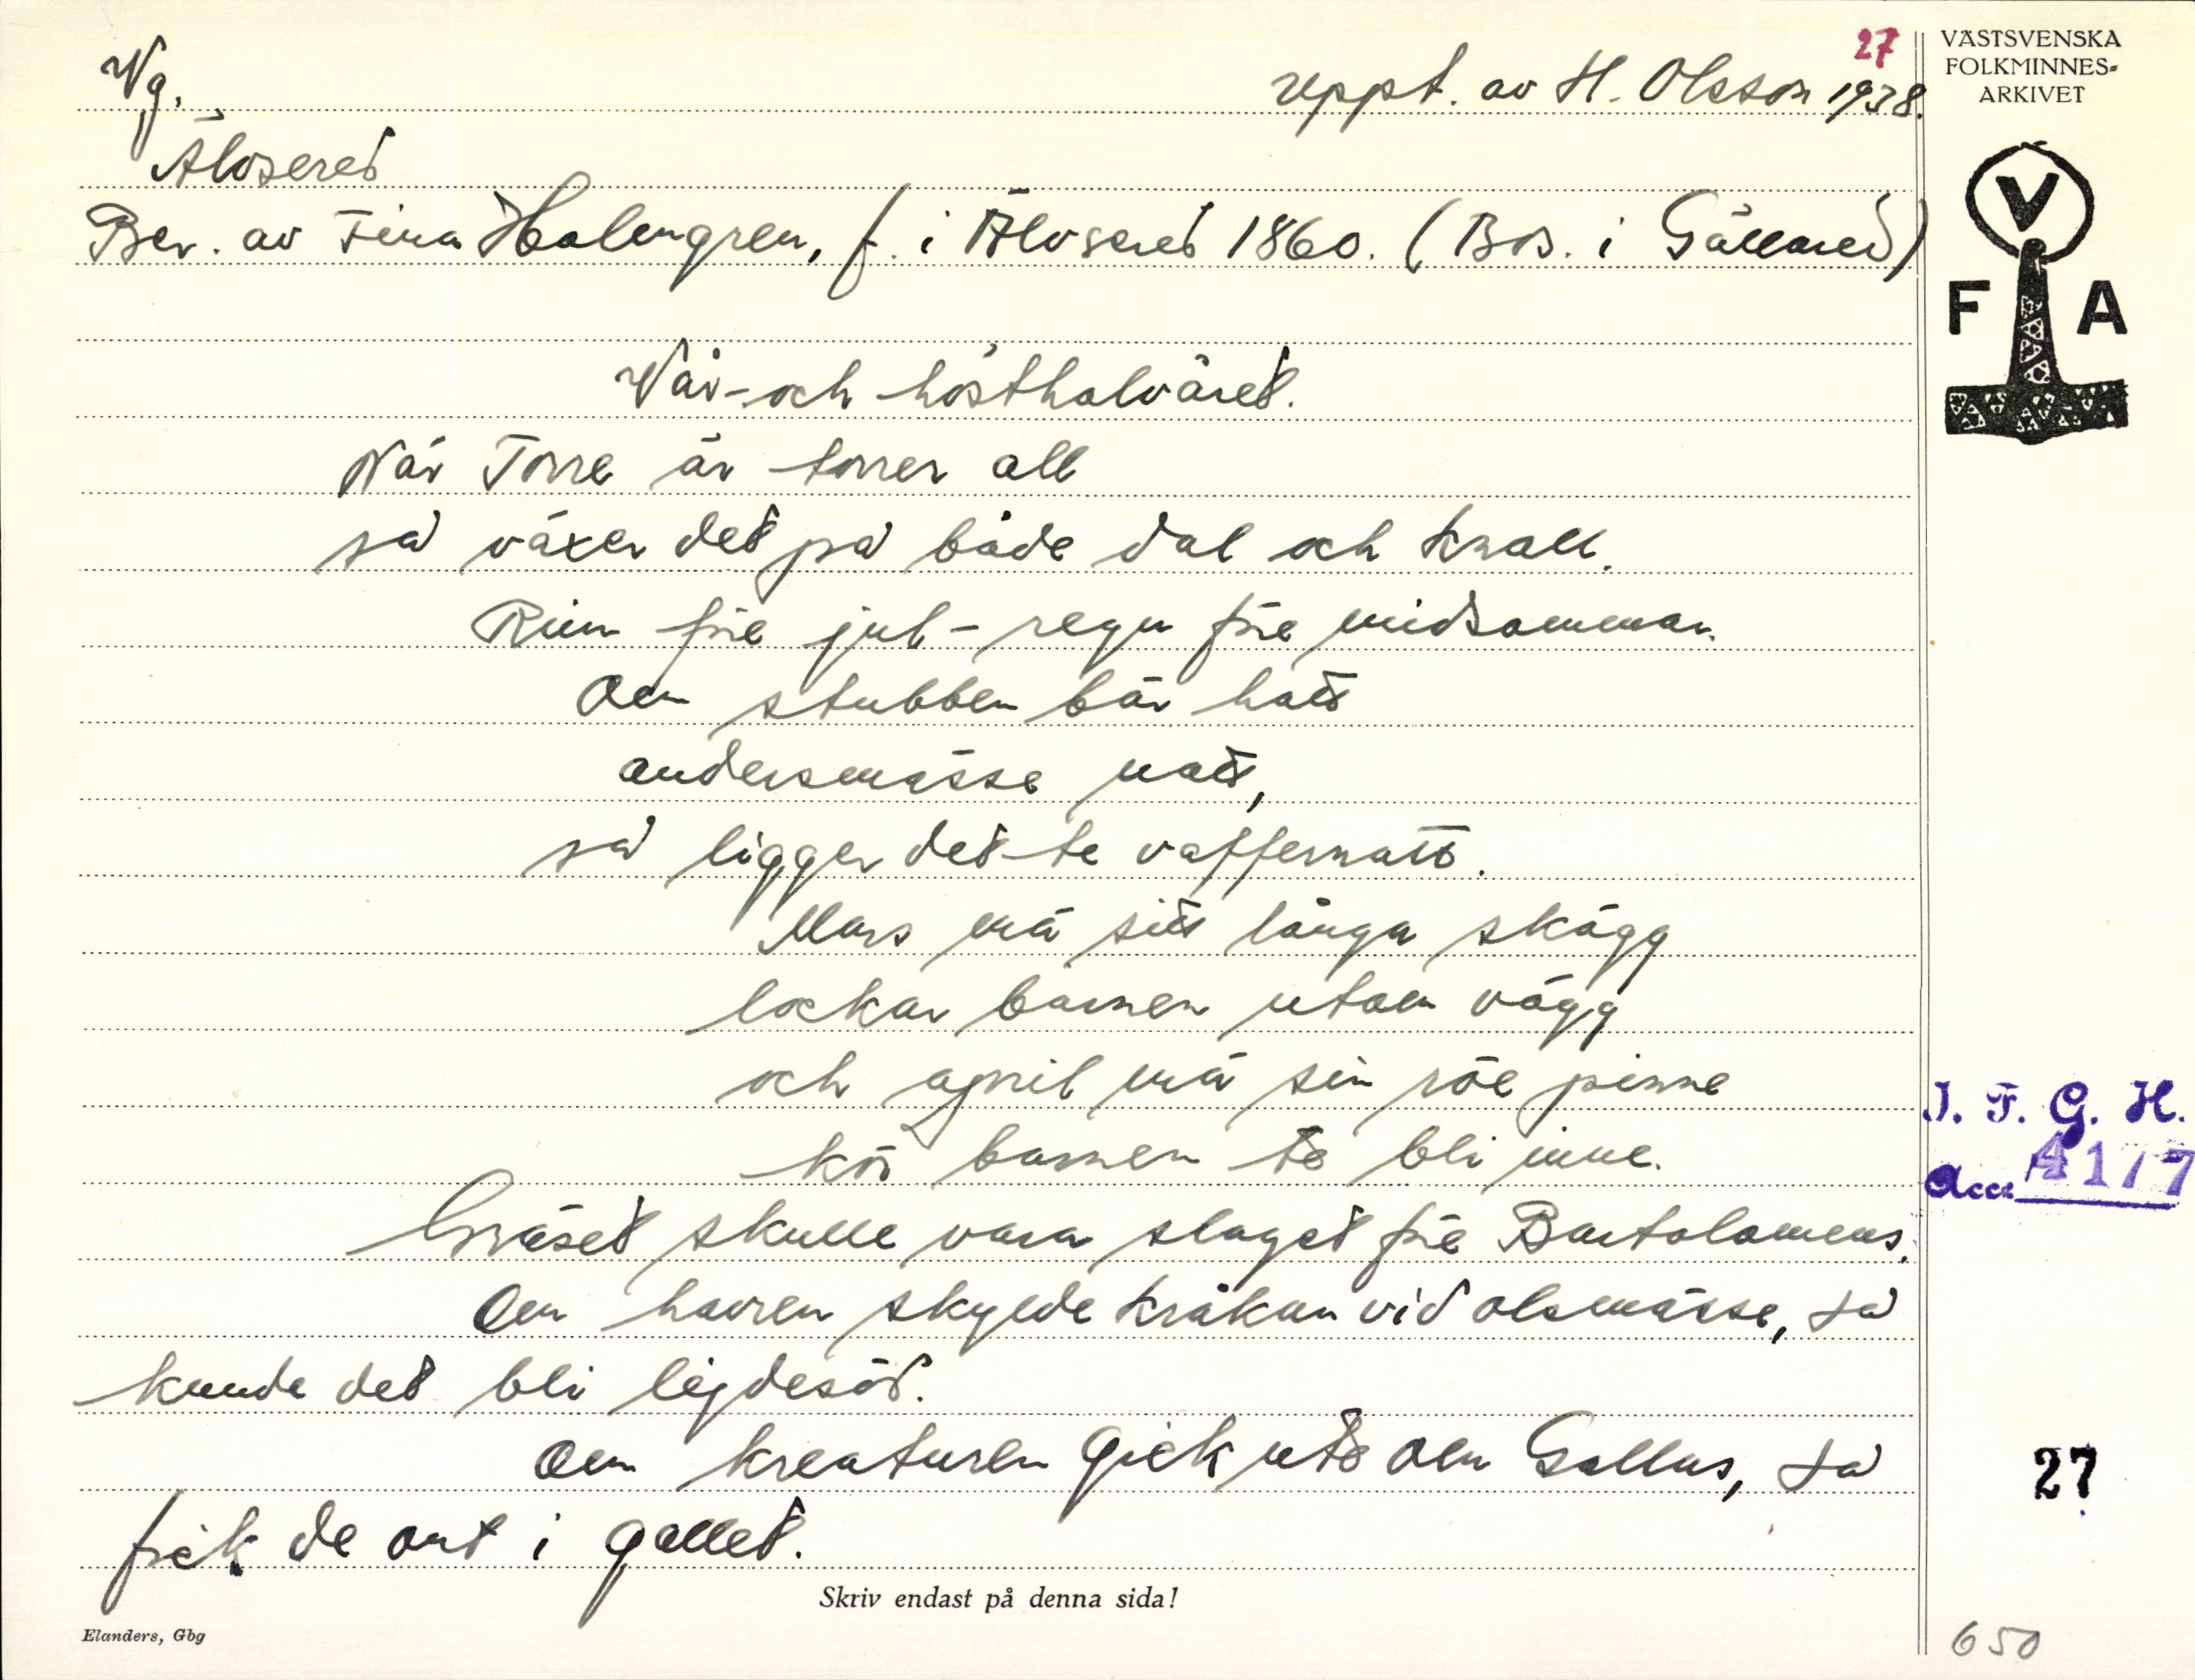 27
VÄSTSVENSKA
FOLKMINNES=
ARKIVET
Vg.
uppt. av H. Olsson 1938.
Älvsered
Ber. av Tina Holmgren, f. i Älvsered 1860. (Bos. i Gällared)
V
F A
Vår- och hösthalvåret.
När Torre är torrer all
så växer det på både dal och knall.
Rim före jul - regn före midsommar.
Om stubben bär hatt
andersmässe natt,
så ligger det te vaffernatt.
Mars mä sitt långa skägg
lockar barnen utom vägg
och april mä sin röe pinne
kör barnen te bli inne.
Gräset skulle vara slaget före Bartolomeus.
Om havren skylde kråkan vid olsmässe, så
kunde det bli ligdesöd.
Om kreaturen gick ute om Gallus, så
fick de ont i gallet.
I. F. G. H.
Acc. 4177
27
Skriv endast på denna sida!
Elanders, Gbg
650